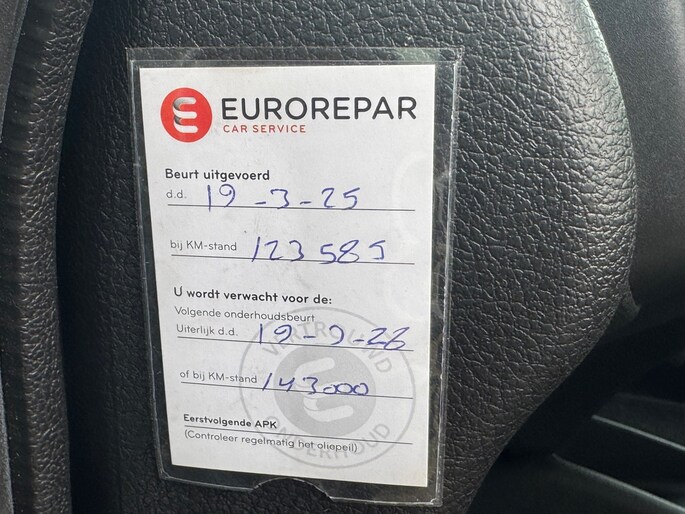 EUROREPAR
CAR SERVICE
Beurt uitgevoerd
d.d. 19-3-25
bij KM-stand 123585
U wordt verwacht voor de:
Volgende onderhoudsbeurt
Uiterlijk d.d. 19-9-26
of bij KM-stand 143000
Eerstvolgende APK
(Controleer regelmatig het oliepeil)
VERTROUWD
ONDERHOUD